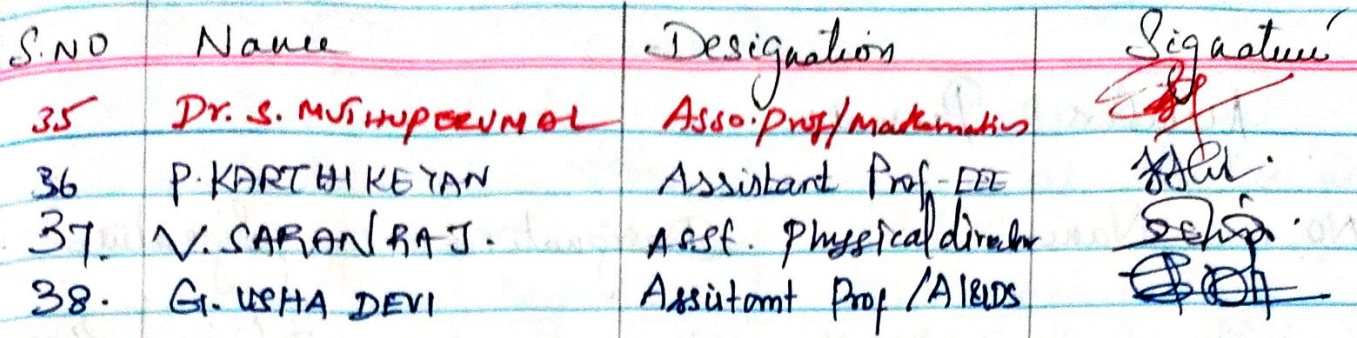 S.NO Name Designation Signature
35 Dr. S. MUTHUPERUMAL Asso.Prof/Mathematics
36 P. KARTHIKEYAN Assistant Prof-EEE
37. V. SARANRAJ. Asst. Physical director
38. G. USHA DEVI Assistant Prof /AI&DS